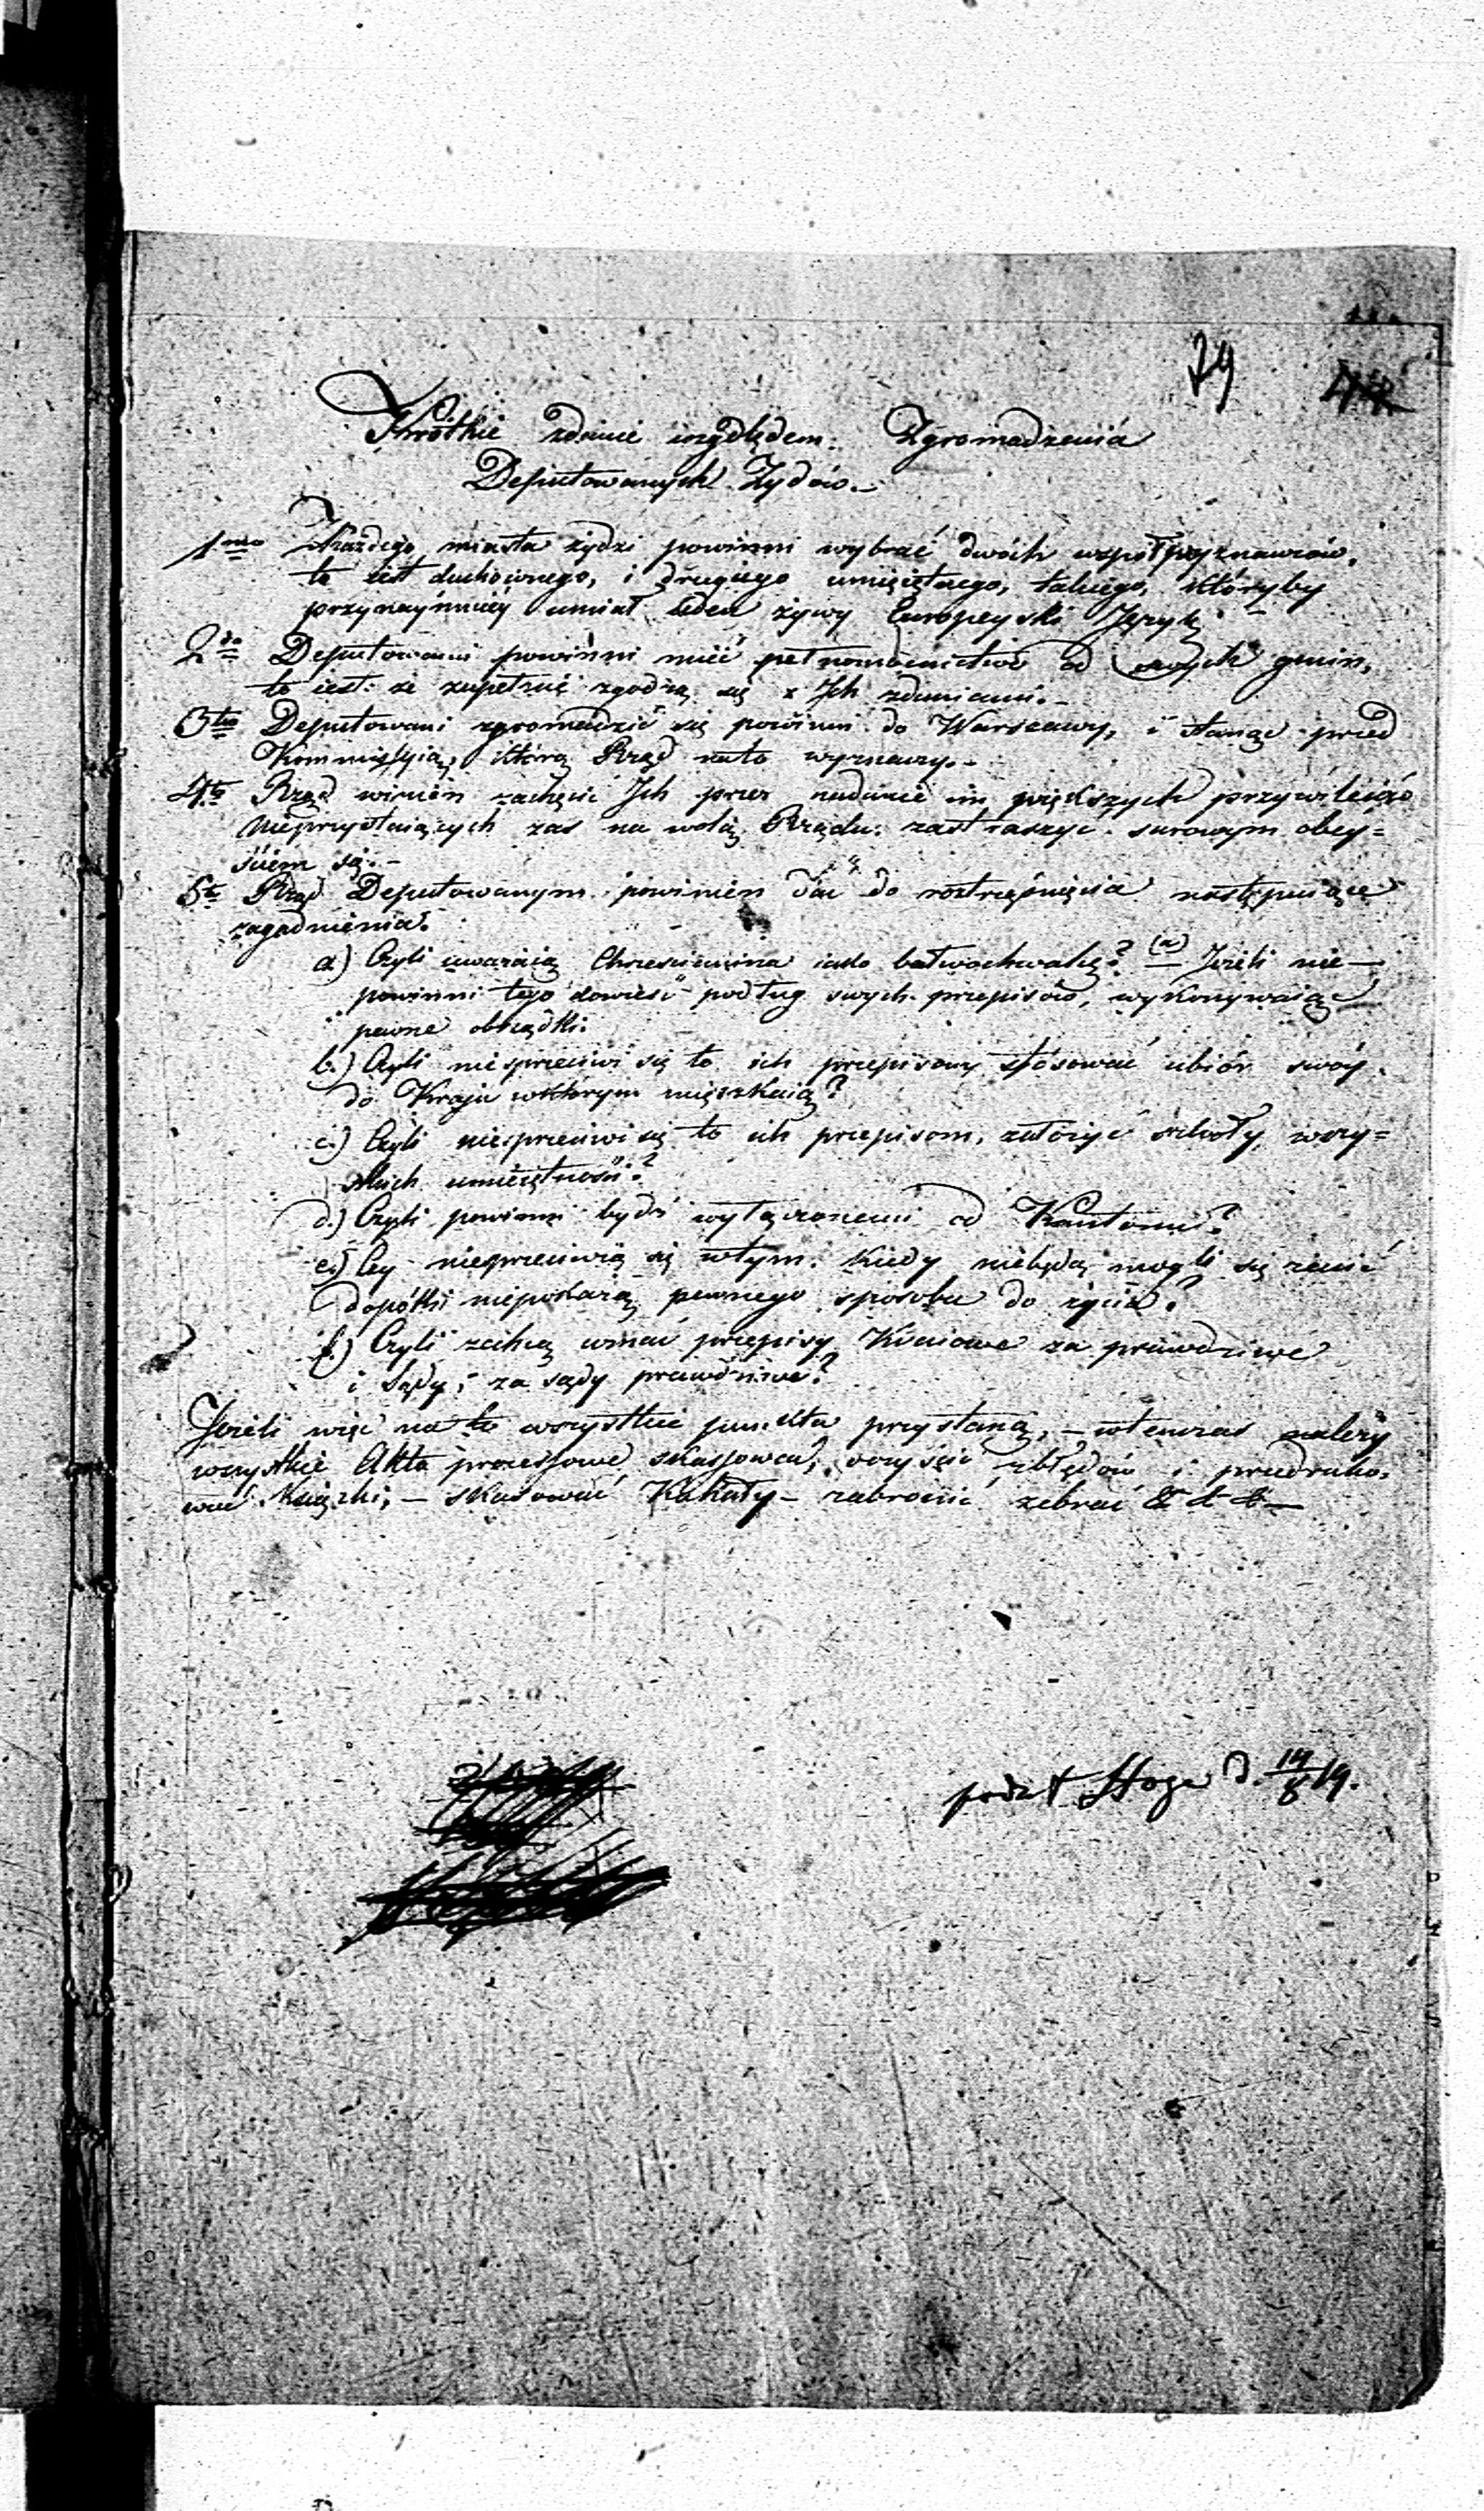 79
Krótkie zdanie względem Zgromadzenia
Deputowanych Żydów.—
1mo Z każdego miasta żydzi powinni wybrać dwóch współwyznawców,
to iest duchownego, i drugiego umieiętnego, takiego, któryby
przynaymniéy umiał ieden żywy Europeyski Język.—
2do Deputowani powinni mieć pełnomocnictwo od swych gmin,
to iest: że zupełnie zgodzą się z Ich zdaniami.—
3tio Deputowani zgromadzić się powinni do Warszawy, i stanąć przed
Kommissyią, którą Rząd na to wyznaczy.—
4to Rząd winien zachęcić Ich przez nadanie im większych przywileiów
nieprzystaiących zaś na wolą Rządu zastraszyć surowym obey=
ściem się.—
5to Rząd Deputowanym powinien dać do roztrząśnięcia następuiące
zagadnienia:
a) Czyli uważaią Chrześcianina iako bałwochwalcę? (a) Jeżeli nie—
powinni tego dowieść podług swych przepisów, wykonywaiąc
pewne obrządki.
b.) Czyli niesprzeciwi się to ich przepisom stósować ubiór swóy
do Kraju w którym mieszkaią?
c.) Czyli niesprzeciwi się to ich przepisom, założyć szkoły wszy=
stkich umieiętności?
d.) Czyli powinni bydź wyłączonemi od Kantonu?
e.) Czy niesprzeciwią się w tym. Kiedy niebędą mogli się żenić
dopótki niepokażą pewnego sposobu do życia?
f.) Czyli zechcą uznać przepisy Kraiowe za prawdziwe
i Sądy, za sądy prawdziwe?
Jeżeli więc na te wszystkie punkta przystaną, — wtenczas należy
wszystkie Akta processowe skassować, oczyścić z błędów i przedruko=
wać Książki, — skasować Kahały — zabronić żebrać & & &—
podał Hoge d. 14/8 19.